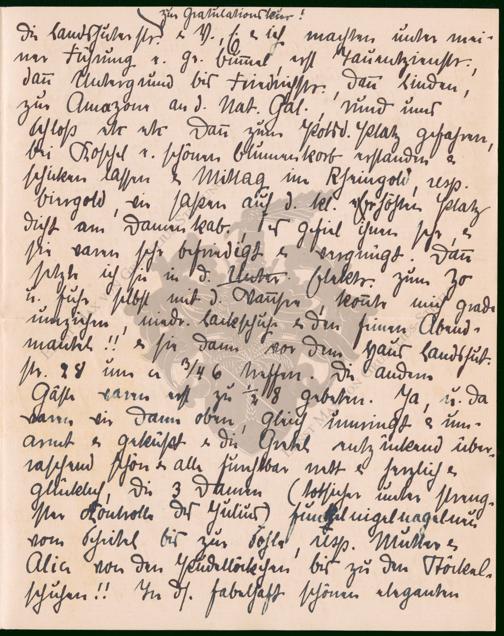 zur Gratulationskur!
die Landshuterstr. e V., E e ich machten unter mei-
ner Führung e. gr. Bummel, erst Tauentzienstr.,
dann Untergrund bis Friedrichstr., dann Linden,
zur Amazone an d. Nat. Gal. rund ums
Schloß etc etc Dann zum Potsd. Platz gefahren,
bei Koschel e. schönen Blumenkorb erstanden e
schicken lassen e Mittag im Rheingold, resp.
Biergold, wir saßen auf d. kl. erhöhten Platz
dicht am Damenkab., es gefiel ihnen sehr, e
sie waren sehr befriedigt e vergnügt. Dann
setzte ich sie in d. Unter. Elektr. zum Zo
u. fuhr selbst mit d. Wannsee, konnte mich grade
umziehen, niedr. Lackschuhe e den feinen Abend-
mantel!! e sie dann vor dem Haus Landshut.
str. 28 um a 3/4 6 treffen. Die andern
Gäste waren erst zu 1/2 8 gebeten. Ja, u. da
waren wir dann oben, gleich umringt e um-
armt e geküßt e die Gretel entzückend über-
raschend schön e alle furchtbar nett e herzlich e
glücklich, die 3 Damen (totsicher unter streng-
ster Kontrolle des Julius) funkelnigelnagelneu
vom Scheitel bis zur Sohle, resp. Mutter e
Alice von den Pudellöckchen bis zu den Stöckel-
schuhen!! In ds. fabelhaft schönen eleganten